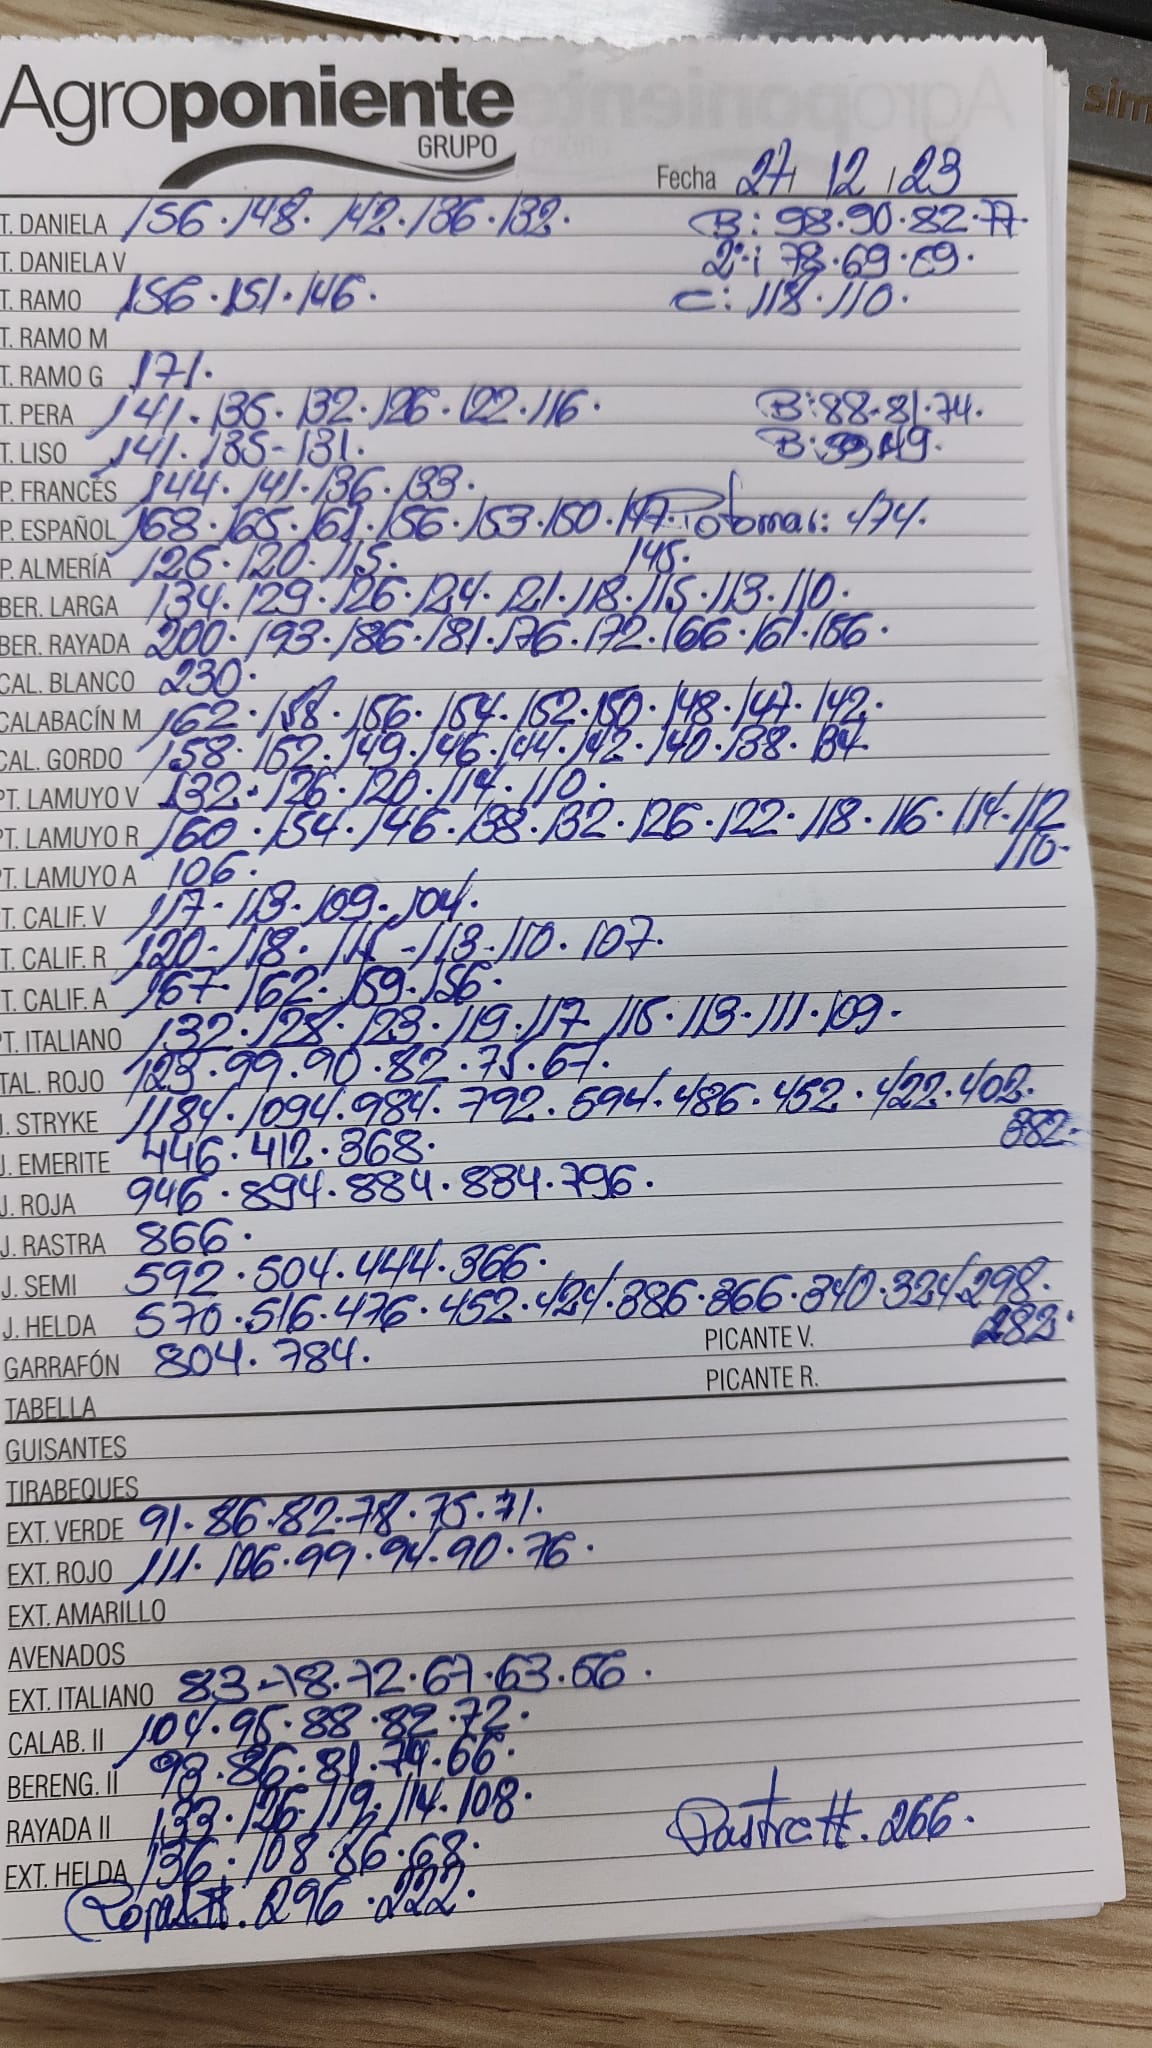 Agroponiente
GRUPO
Fecha 27 / 12 / 23
T. DANIELA 156 · 148 · 142 · 136 · 132 · B: 98 · 90 · 82 · 77 ·
T. DANIELA V 2ª: 78 · 69 · 69 ·
T. RAMO 156 · 151 · 146 · C: 118 · 110 ·
T. RAMO M
T. RAMO G 171 ·
T. PERA 141 · 135 · 132 · 126 · 122 · 116 · B: 88 - 81 · 74 ·
T. LISO 141 · 135 - 131 · B:
P. FRANCÉS 144 · 141 · 136 · 133 ·
P. ESPAÑOL 168 · 165 · 161 · 156 · 153 · 150 · 147 · 174 ·
P. ALMERÍA 126 · 120 · 115 · 145 ·
BER. LARGA 134 · 129 · 126 · 124 · 121 · 118 · 115 · 113 · 110 ·
BER. RAYADA 200 · 193 · 186 · 181 · 176 · 172 · 166 · 161 · 156 ·
CAL. BLANCO 230 ·
CALABACÍN M 162 · 158 · 156 · 154 · 152 · 150 · 148 · 147 · 142 ·
CAL. GORDO 158 · 152 · 149 · 146 · 144 · 142 · 140 · 138 · 134 ·
PT. LAMUYO V 132 · 126 · 120 · 114 · 110 ·
PT. LAMUYO R 160 · 154 · 146 · 138 · 132 · 126 · 122 · 118 · 116 · 114 · 112
110 ·
PT. LAMUYO A 106 ·
T. CALIF. V 117 · 113 · 109 · 104 ·
T. CALIF. R 120 - 118 · 115 - 113 - 110 · 107 ·
T. CALIF. A 167 · 162 · 159 · 156 ·
PT. ITALIANO 132 · 128 · 123 · 119 · 117 · 115 · 113 · 111 · 109 ·
TAL. ROJO 123 · 99 · 90 · 82 · 75 · 67 ·
J. STRYKE 1184 · 1094 · 984 · 792 · 594 · 486 · 452 · 422 · 402 ·
382 ·
J. EMERITE 446 · 412 · 368 ·
J. ROJA 946 · 894 · 884 · 834 · 796 ·
J. RASTRA 866 ·
J. SEMI 592 · 504 · 444 · 366 ·
J. HELDA 570 · 516 · 476 · 452 · 424 · 386 · 366 · 340 · 324 · 298 ·
PICANTE V. 282 ·
GARRAFÓN 804 · 784 ·
PICANTE R.
TABELLA
GUISANTES
TIRABEQUES
EXT. VERDE 91 · 86 · 82 · 78 · 75 · 71 ·
EXT. ROJO 111 · 106 · 99 · 94 · 90 · 76 ·
EXT. AMARILLO
AVENADOS
EXT. ITALIANO 83 · 78 · 72 · 67 · 63 · 56 ·
CALAB. II 104 · 95 · 88 · 82 · 72 ·
BERENG. II 93 · 86 · 81 · 74 · 66 ·
RAYADA II 133 · 126 · 119 · 114 · 108 ·
EXT. HELDA 136 · 108 · 86 · 68 · Rastra II. 266 ·
Roja II. 296 · 222 ·